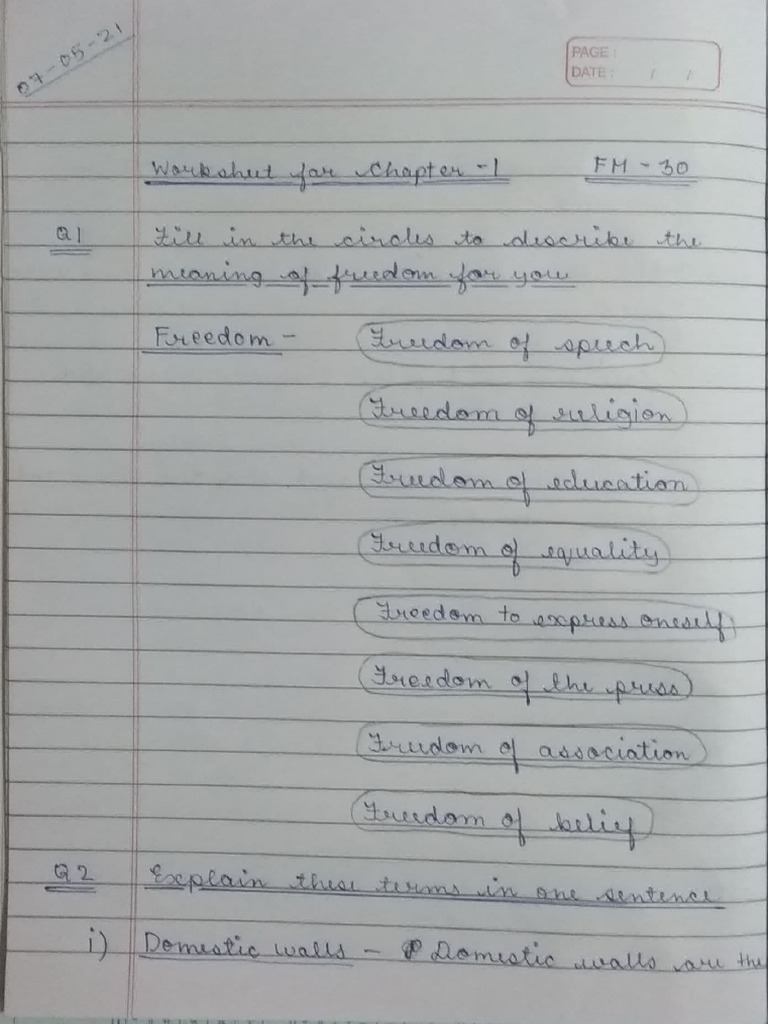 07-05-21
PAGE :
DATE : / /
Worksheet for Chapter -1 FM - 30
Q1 Fill in the circles to describe the
meaning of freedom for you
Freedom - Freedom of speech
Freedom of religion
Freedom of education
Freedom of equality
Freedom to express oneself
Freedom of the press
Freedom of association
Freedom of belief
Q2 Explain these terms in one sentence
i) Domestic walls - Domestic walls are the